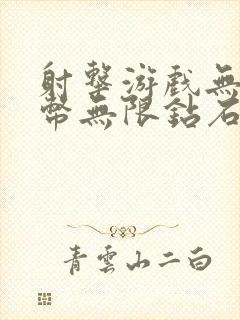 射擊游戲無
幣無限鉆石
青雲山二白